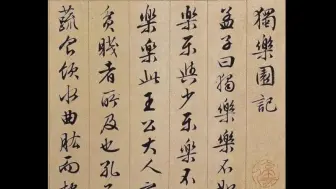 獨樂園記
孟子曰獨樂樂不如
樂樂與少樂樂不
樂樂此王公大人
貧賤者所及也孔
蔬食飲水曲肱而